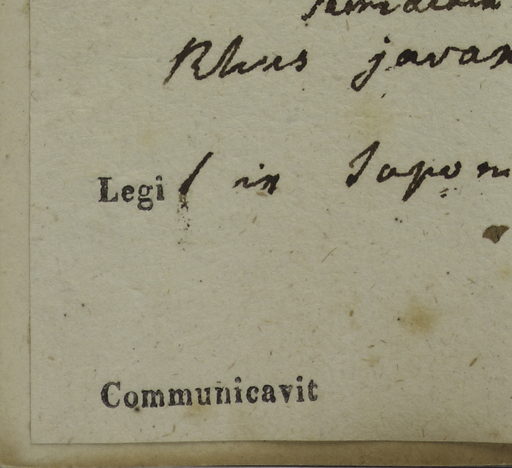 Rhus javan
Legi in Japon
Communicavit